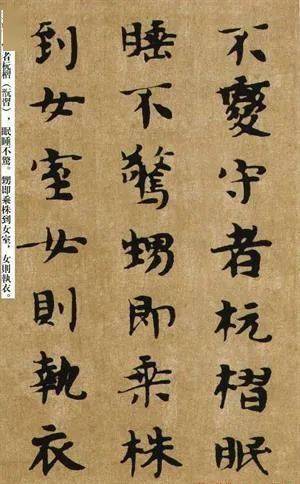 不變守者杬槢眠
睡不驚甥即乘株
到女室女則執衣
者杬槢（翫習），眠睡不驚。甥即乘株到女室，女則執衣。